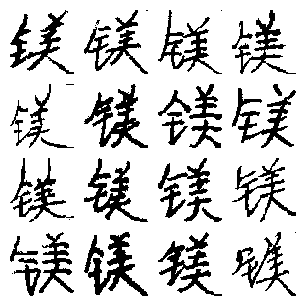 镁镁镁镁
镁镁镁镁
镁镁镁镁
镁镁镁镁